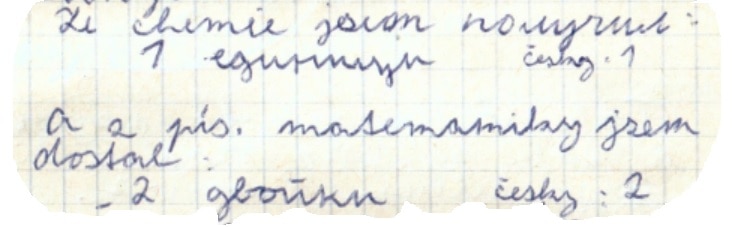 Ze chemie jsem получил:
1 единицу česky: 1
A z pís. matematiky jsem
dostal :
- 2 двойки česky : 2